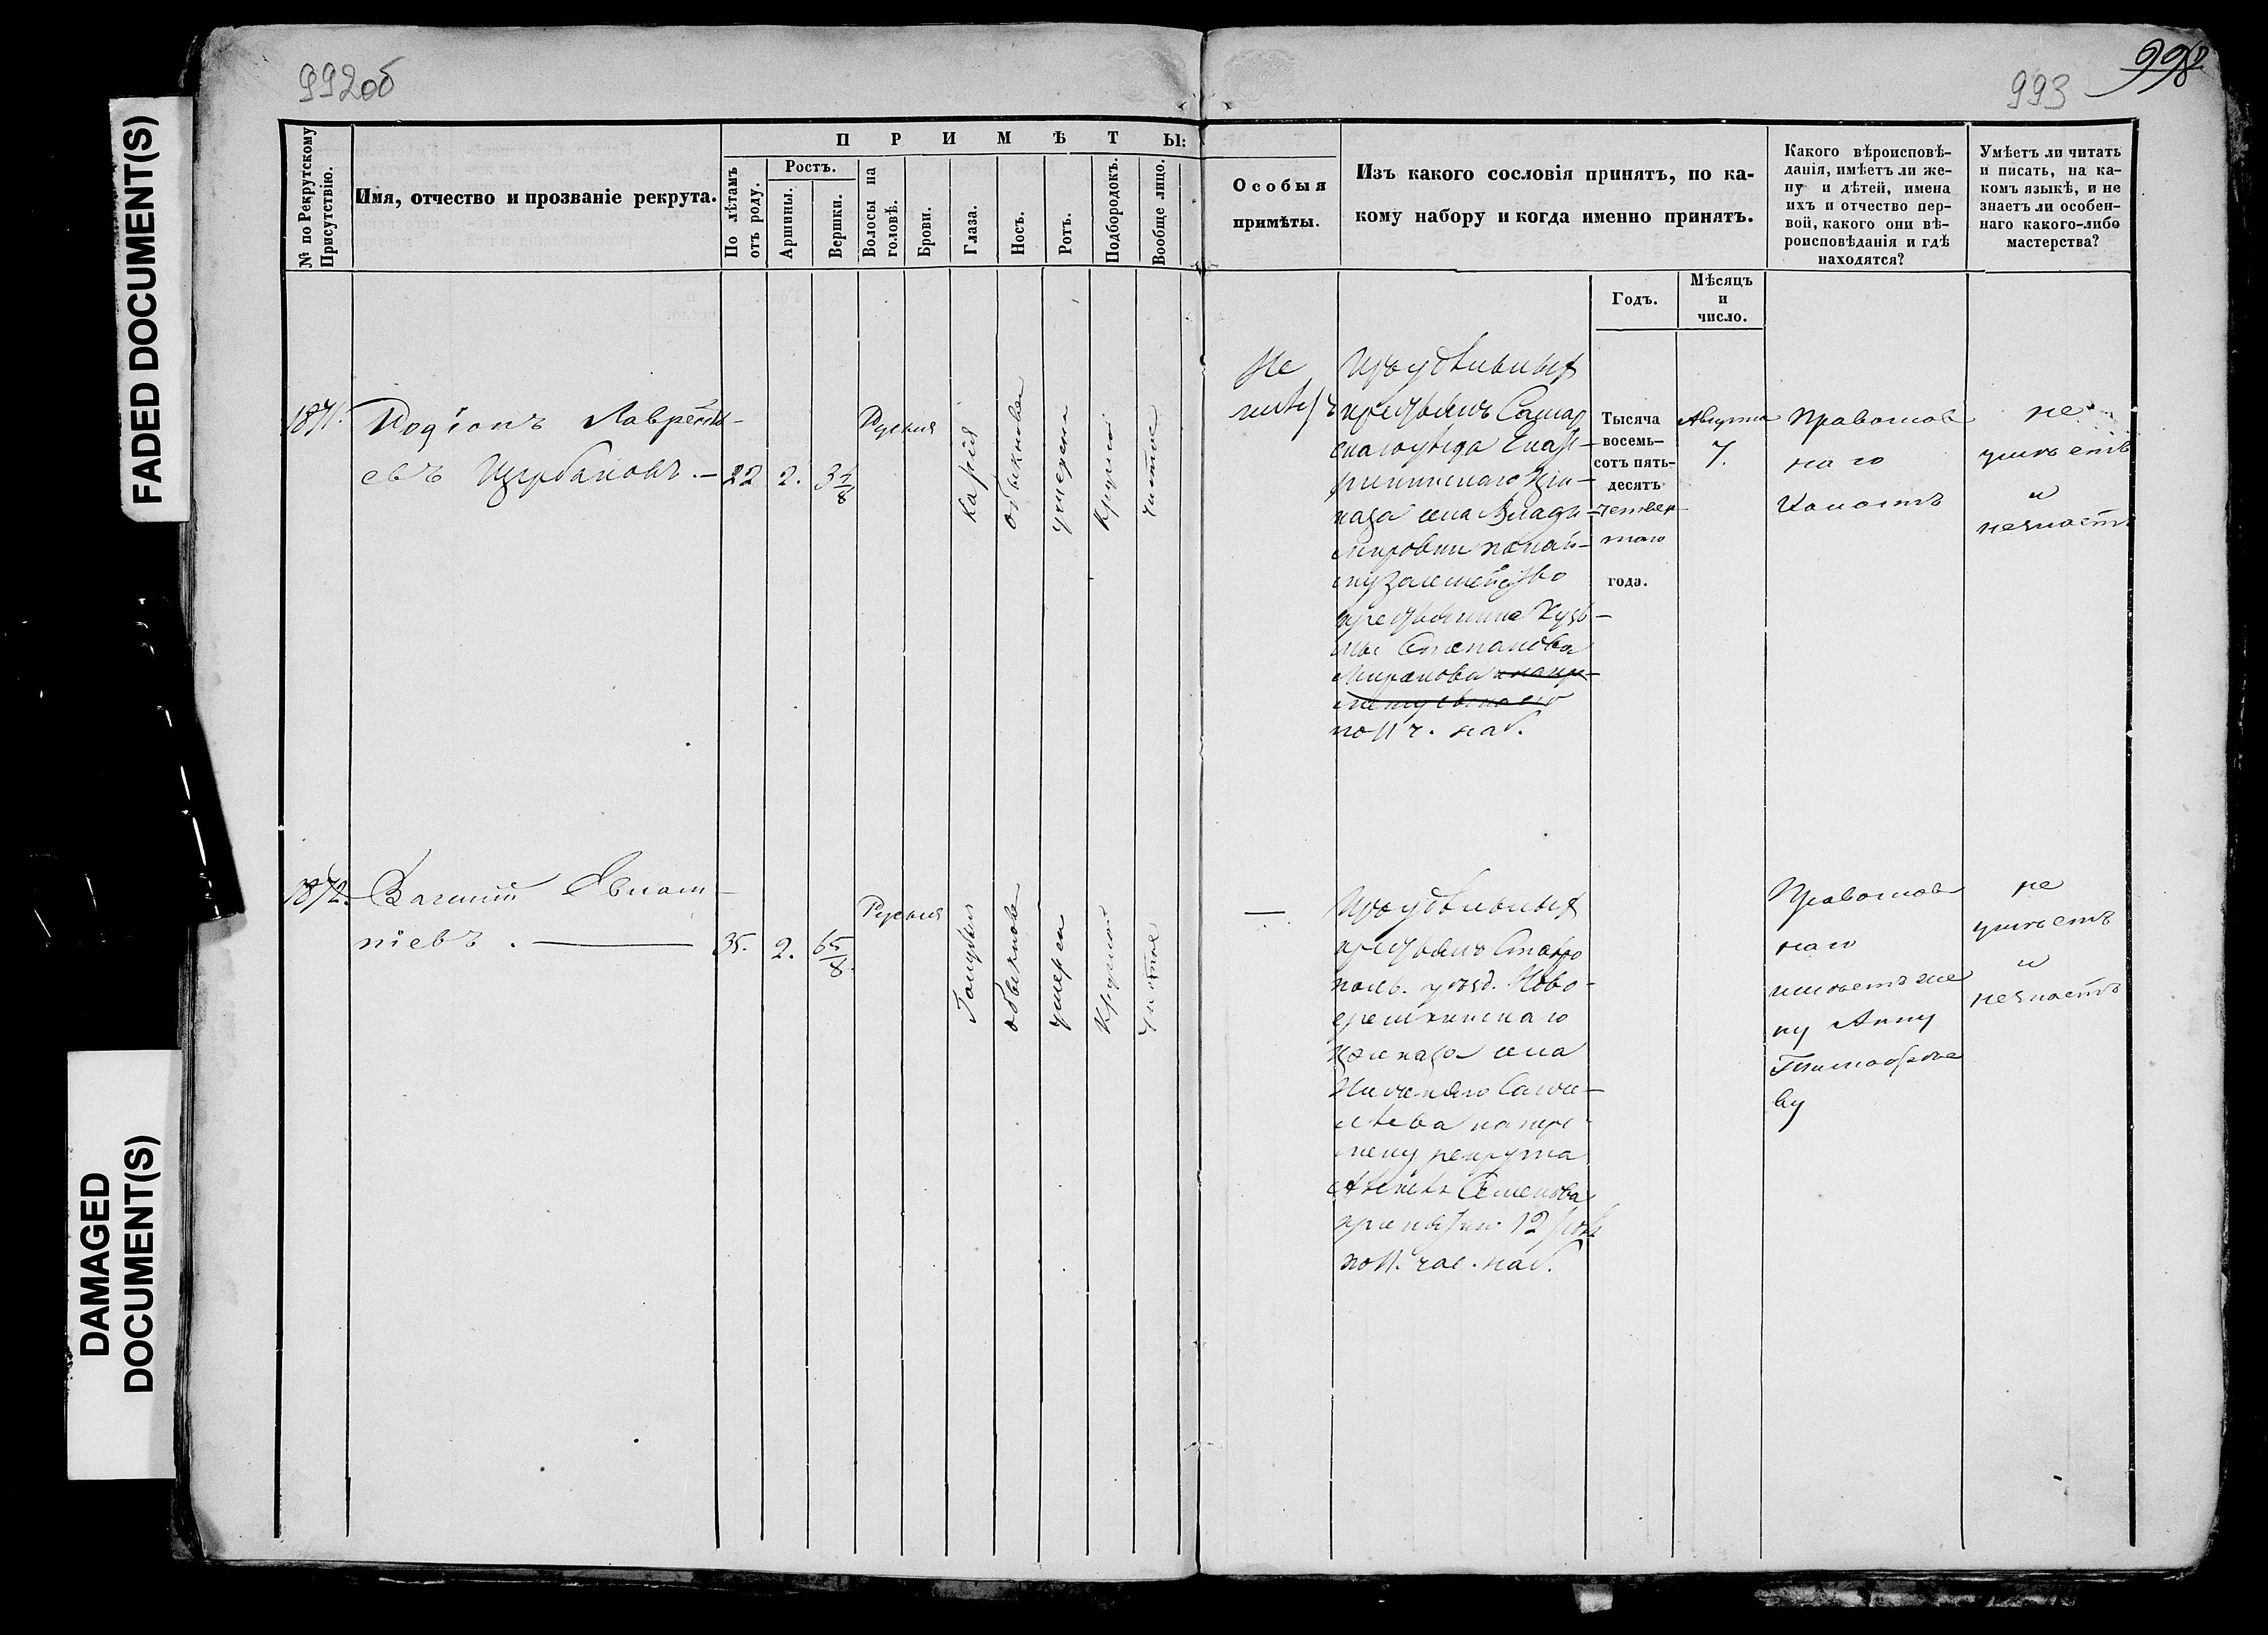 FADED DOCUMENT(S)
DAMAGED
DOCUMENT(S)
992об
993
№ по Рекрутскому
Присутствію.
Имя, отчество и прозваніе рекрута.
ПРИМѢТЫ:
По лѣтамъ
отъ роду.
Ростъ.
Аршины.
Вершки.
Волосы на
головѣ.
Брови.
Глаза.
Носъ.
Ротъ.
Подбородокъ.
Вообще лицо.
Особыя
примѣты.
Изъ какого сословія принятъ, по ка-
кому набору и когда именно принятъ.
Годъ.
Мѣсяцъ
и
число.
Какого вѣроисповѣ-
данія, имѣетъ ли же-
ну и дѣтей, имена
ихъ и отчество пер-
вой, какого они вѣ-
роисповѣданія и гдѣ
находятся?
Умѣетъ ли читать
и писать, на ка-
комъ языкѣ, и не
знаетъ ли особен-
наго какого-либо
мастерства?
1871.
Родіонъ Лаврентьевъ
Щербаковъ.
22
2.
3 1/8
Русыя
Карія
обыкнове
умерен
круглой
чистое
Не
имѣетъ
Изъ удѣльныхъ
крестьянъ Самар
скаго уѣзда
приказа села Влади-
мировки по най-
му за семейство
крестьянина Кузь-
мы Степанова
Миронова
по 11 ч. наб.
Тысяча
восемь-
сотъ пять-
десятъ
четвер-
таго
года.
Августа
7.
Православ
наго
Холостъ
не
умѣетъ
и
незнаетъ
1872.
Василій Евпат-
ніевъ.
35.
2.
6 5/8.
Русыя
Голубыя
обыкнове
умерен
круглой
чистое
—
Изъ удѣльныхъ
крестьянъ Ставро
поль. уѣзд. Ново-
еремкинскаго
приказа села
на пере-
мену рекрута
Семенова
12
по 11. час. наб.
Православ
наго
имѣетъ же
ну Анну
Тимофѣе
ву
не
умѣетъ
и
незнаетъ